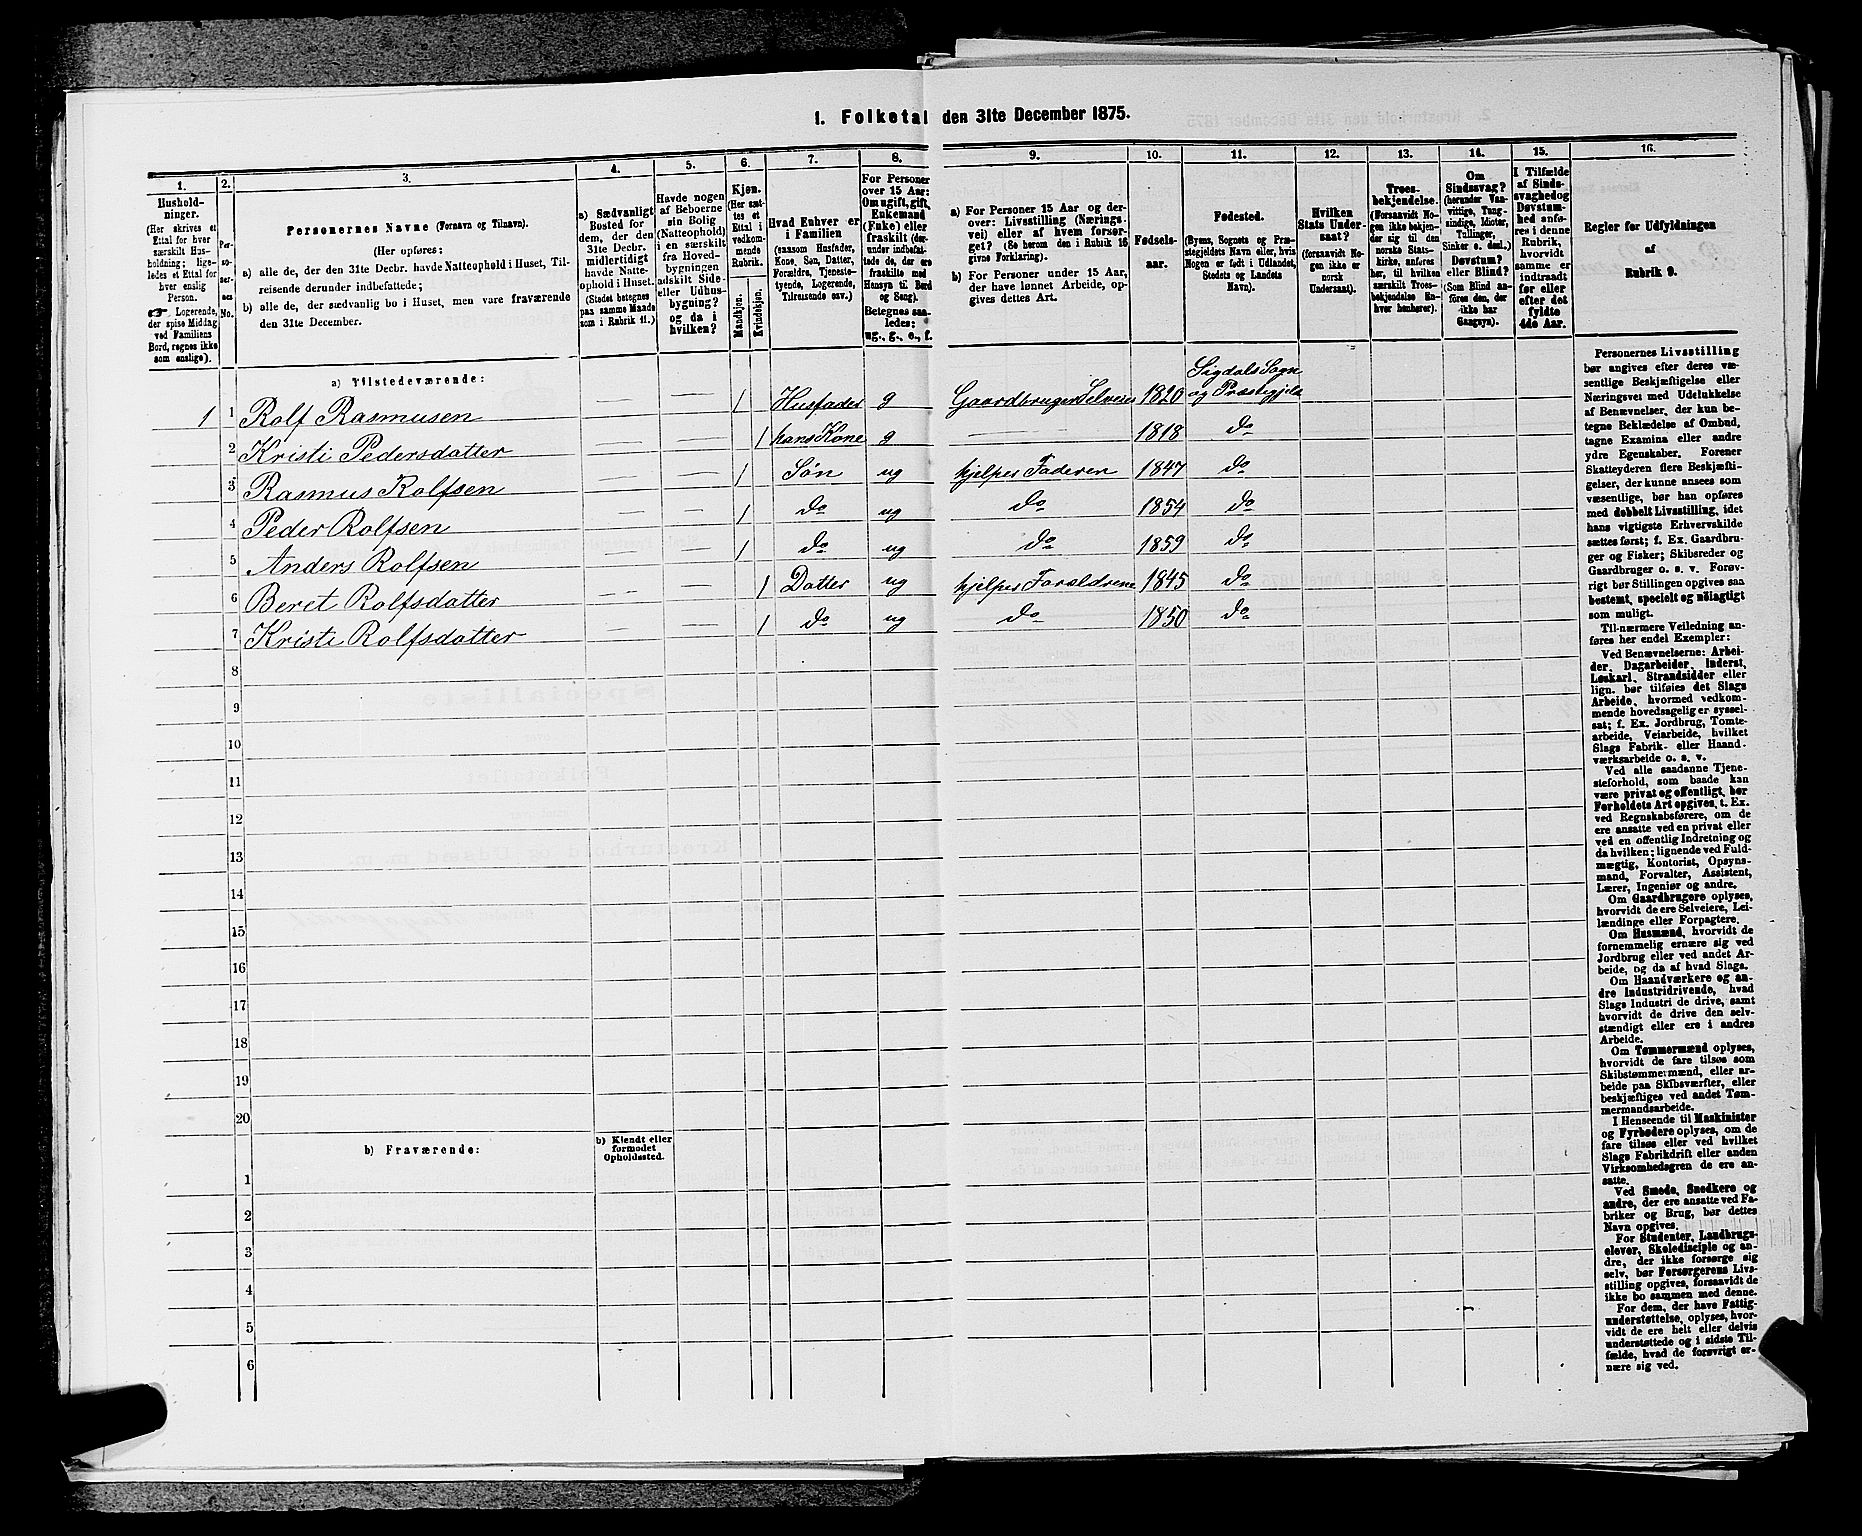 1. Folketal den 31te December 1875.
1.
2.
3.
4.
5.
6.
7.
8.
9.
10.
11.
12.
13.
14.
15.
16.
Hushold-
ninger.
(Her skrives et
Ettal for hver
særskilt Hus-
holdning; lige-
ledes et Ettal for
hver enslig
Person.
☛ Logerende,
der spise Middag
ved Familiens
Bord, regnes ikke
som enslige).
Personernes Navne (Fornavn og Tilnavn).
(Her opføres:
a) alle de, der den 31te Decbr. havde Natteophold i Huset, Til-
reisende derunder indbefattede;
b) alle de, der sædvanlig bo i Huset, men vare fraværende
den 31te December.
a) Sædvanligt
Bosted for
dem, der den
31te Decbr.
midlertidigt
havde Natte-
ophold i Huset.
(Stedet betegnes
paa samme Maade
som i Rubrik 11.)
Havde nogen
af Beboerne
sin Bolig
(Natteophold)
i en særskilt
fra Hoved-
bygningen
adskilt Side-
eller Udhus-
bygning?
og da i
hvilken?
Kjøn.
(Her sæt-
tes et
Ettal i
vedkom-
mende
Rubrik.
Mandkjøn.
Kvindekjøn.
Hvad Enhver er
i Familien
(saasom Husfader,
Kone, Søn, Datter,
Forældre, Tjeneste-
tyende, Logerende,
Tilreisende osv.)
For Personer
over 15 Aar:
Om ugift, gift,
Enkemand
(Enke) eller
fraskilt (der-
under indbefat-
tede de, der ere
fraskilte med
Hensyn til Bord
og Seng).
Betegnes saa-
ledes:
ug., g., e., f.
a) For Personer 15 Aar og der-
over: Livsstilling (Nærings-
vei) eller af hvem forsør-
get? (Se herom den i Rubrik 16
givne Forklaring).
b) For Personer under 15 Aar,
der have lønnet Arbeide, op-
gives dettes Art.
Fødsels-
aar.
Fødested.
(Byens, Sognets og Præ-
stegjeldets Navn eller, hvis
Nogen er født i Udlandet,
Stedets og Landets
Navn).
Hvilken
Stats Under-
saat?
(forsaavidt No-
gen ikke er
norsk
Undersaat).
Troes-
bekjendelse.
(Forsaavidt No-
gen ikke bekjen-
der sig til den
norske Stats-
kirke, anføres
her, til hvilken
særskilt Troes-
bekjendelse En-
hver henhører).
Om
Sindssvag?
(herunder Van-
vittige, Tung-
sindige, Idioter,
Tullinger,
Sinker o. desl.,)
Døvstum?
eller Blind?
(Som Blind an-
føres den, der
ikke har
Gangsyn).
I Tilfælde
af Sinds-
svaghed og
Døvstum-
hed anfø-
res i denne
Rubrik,
hvorvidt
samme er
indtraadt
før eller
efter det
fyldte
4de Aar.
Regler for Udfyldningen
af
Rubrik 9.
a) Tilstedeværende:
1 1 Rolf Rasmusen — — 1 Husfader g Gaardbruger Selveier 1820 Sigdals Sogn og Præstegjeld
2 Kristi Pedersdatter — — 1 hans Kone g — 1818 do
3 Rasmus Rolfsen — — 1 Søn ug hjelper Faderen 1847 do
4 Peder Rolfsen — — 1 do ug do 1854 do
5 Anders Rolfsen — — 1 do ug do 1859 do
6 Beret Rolfsdatter — — 1 Datter ug hjelper Foraldrene 1845 do
7 Kristi Rolfsdatter — — 1 do ug do 1850 do
8
9
10
11
12
13
14
15
16
17
18
19
20
b) Fraværende:
b) Kjendt eller
formodet
Opholdssted.
1
2
3
4
5
6
Personernes Livsstilling
bør angives efter deres væ-
sentlige Beskjæftigelse eller
Næringsvei med Udelukkelse
af Benævnelser, der kun be-
tegne Beklædelse af Ombud,
tagne Examina eller andre
ydre Egenskaber. Forener
Skatteyderen flere Beskjæfti-
gelser, der kunne ansees som
væsentlige, bør han opføres
med dobbelt Livsstilling, idet
hans vigtigste Erhvervskilde
sættes først; f. Ex. Gaardbru-
ger og Fisker; Skibsreder og
Gaardbruger o. s. v. Forøv-
rigt bør Stillingen opgives saa
bestemt, specielt og nöiagtigt
som muligt.
Til nærmere Veiledning an-
føres her endel Exempler:
Ved Benævnelserne: Arbei-
der, Dagarbeider, Inderst,
Løskarl, Strandsidder eller
lign. bør tilføies det Slags
Arbeide, hvormed vedkom-
mende hovedsagelig er syssel-
sat; f. Ex. Jordbrug, Tomte-
arbeide, Veiarbeide, hvilket
Slags Fabrik- eller Haand-
værksarbeide o. s. v.
Ved alle saadanne Tjene-
steforhold, som baade kan
være privat og offentligt, bør
Forholdets Art opgives, t. Ex.
ved Regnskabsførere, om de
ere ansatte ved en privat eller
ved en offentlig Indretning og
da hvilken; lignende ved Fuld-
mægtig, Kontorist, Opsyns-
mand, Forvalter, Assistent,
Lærer, Ingeniør og andre.
Om Gaardbrugere oplyses,
hvorvidt de ere Selveiere, Lei-
lændinge eller Forpagtere.
Om Husmænd, hvorvidt de
fornemmelig ernære sig ved
Jordbrug eller ved andet Ar-
beide, og da af hvad Slags.
Om Haandværkere og an-
dre Industridrivende, hvad
Slags Industri de drive, samt
hvorvidt de drive den selv-
stændigt eller ere i andres
Arbeide.
Om Tømmermænd oplyses,
hvorvidt de fare tilsøs som
Skibstømmermænd, eller ar-
beide paa Skibsværfter, eller
beskjæftiges ved andet Tøm-
mermandsarbeide.
I Henseende til Maskinister
og Fyrbødere oplyses, om de
fare tilsøs eller ved hvilket
Slags Fabrikdrift eller anden
Virksomhedsgren de ere an-
satte.
Ved Smede, Snedkere og
andre, der ere ansatte ved Fa-
briker og Brug, bør dettes
Navn opgives.
For Studenter, Landbrugs-
elever, Skoledisciple og an-
dre, der ikke forsørge sig
selv, bør Forsørgerens Livs-
stilling opgives, forsaavidt de
ikke bo sammen med denne.
For dem, der have Fattig-
understøttelse, oplyses, hvor-
vidt de ere helt eller delvis
understøttede og i sidste Til-
fælde, hvad de forøvrigt er-
nære sig ved.